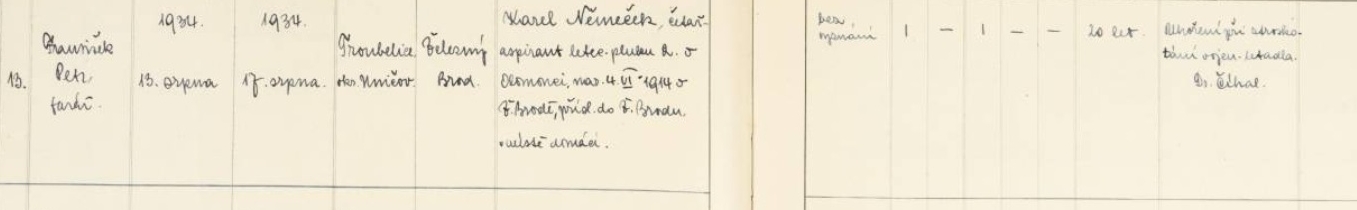 13.
František
Petr,
farář.
1934.
13. srpna
1934.
17. srpna.
Troubelice,
okr. Uničov.
Železný
Brod.
Karel Němeček, četař-
aspirant letec. pluku 2. v
Olomouci, nar. 4. VI. 1914 v
Ž. Brodě, přísl. do Ž. Brodu
v místě domácí.
bez
vyznání
1 — 1 — —
20 let.
Uhoření při ztrosko-
tání vojen. letadla.
Dr. Číhal.